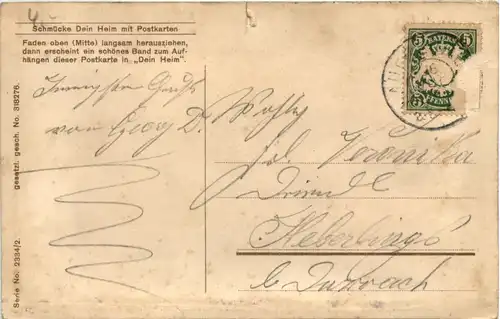 4.-
Schmücke Dein Heim mit Postkarten
Faden oben (Mitte) langsam herausziehen,
dann erscheint ein schönes Band zum Auf-
hängen dieser Postkarte in „Dein Heim“.
5 BAYERN 5
PFENNIG
Innigsten Gruß
von Georg D.
Wohlg.
Frl. Veronika
Heberlings
b/ Durrach
Serie No. 2334/2. gesetzl. gesch. No. 318276.